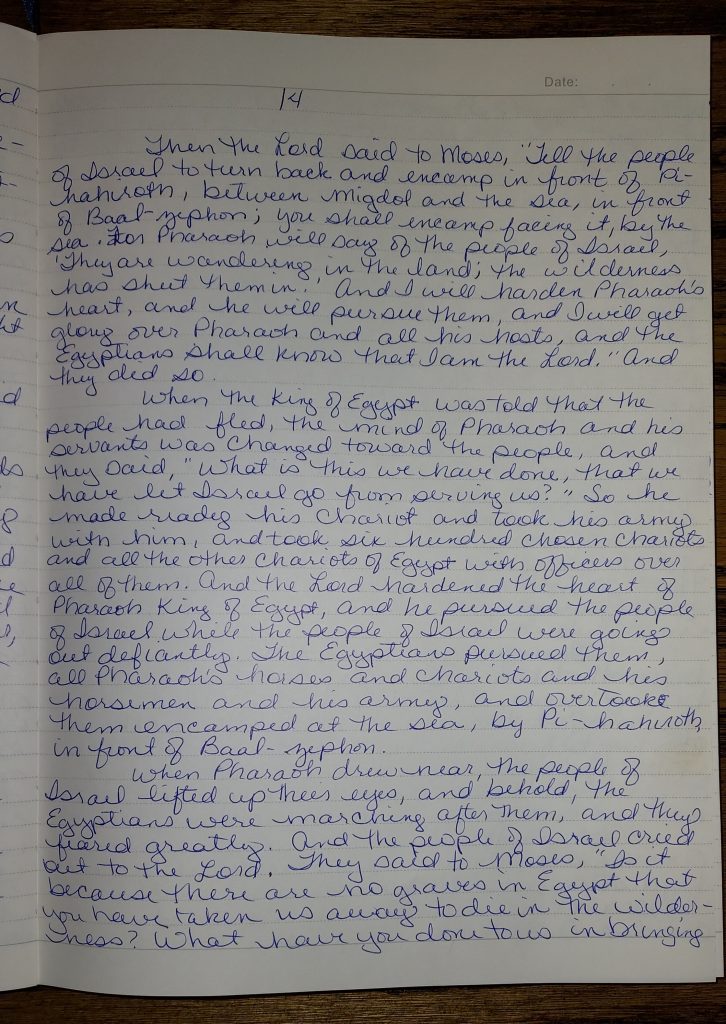 Date:
14
Then the Lord said to Moses, "Tell the people
of Israel to turn back and encamp in front of Pi-
hahiroth, between Migdol and the sea, in front
of Baal-zephon; you shall encamp facing it, by the
sea. For Pharaoh will say of the people of Israel,
'They are wandering in the land; the wilderness
has shut them in.' And I will harden Pharaoh's
heart, and he will pursue them, and I will get
glory over Pharaoh and all his hosts, and the
Egyptians shall know that I am the Lord." And
they did so.
When the King of Egypt was told that the
people had fled, the mind of Pharaoh and his
servants was changed toward the people, and
they said, "What is this we have done, that we
have let Israel go from serving us?" So he
made ready his chariot and took his army
with him, and took six hundred chosen chariots
and all the other chariots of Egypt with officers over
all of them. And the Lord hardened the heart of
Pharaoh King of Egypt, and he pursued the people
of Israel while the people of Israel were going
out defiantly. The Egyptians pursued them,
all Pharaoh's horses and chariots and his
horsemen and his army, and overtook
them encamped at the sea, by Pi-hahiroth,
in front of Baal-zephon.
When Pharaoh drew near, the people of
Israel lifted up their eyes, and behold, the
Egyptians were marching after them, and they
feared greatly. And the people of Israel cried
out to the Lord. They said to Moses, "Is it
because there are no graves in Egypt that
you have taken us away to die in the wilder-
ness? What have you done to us in bringing